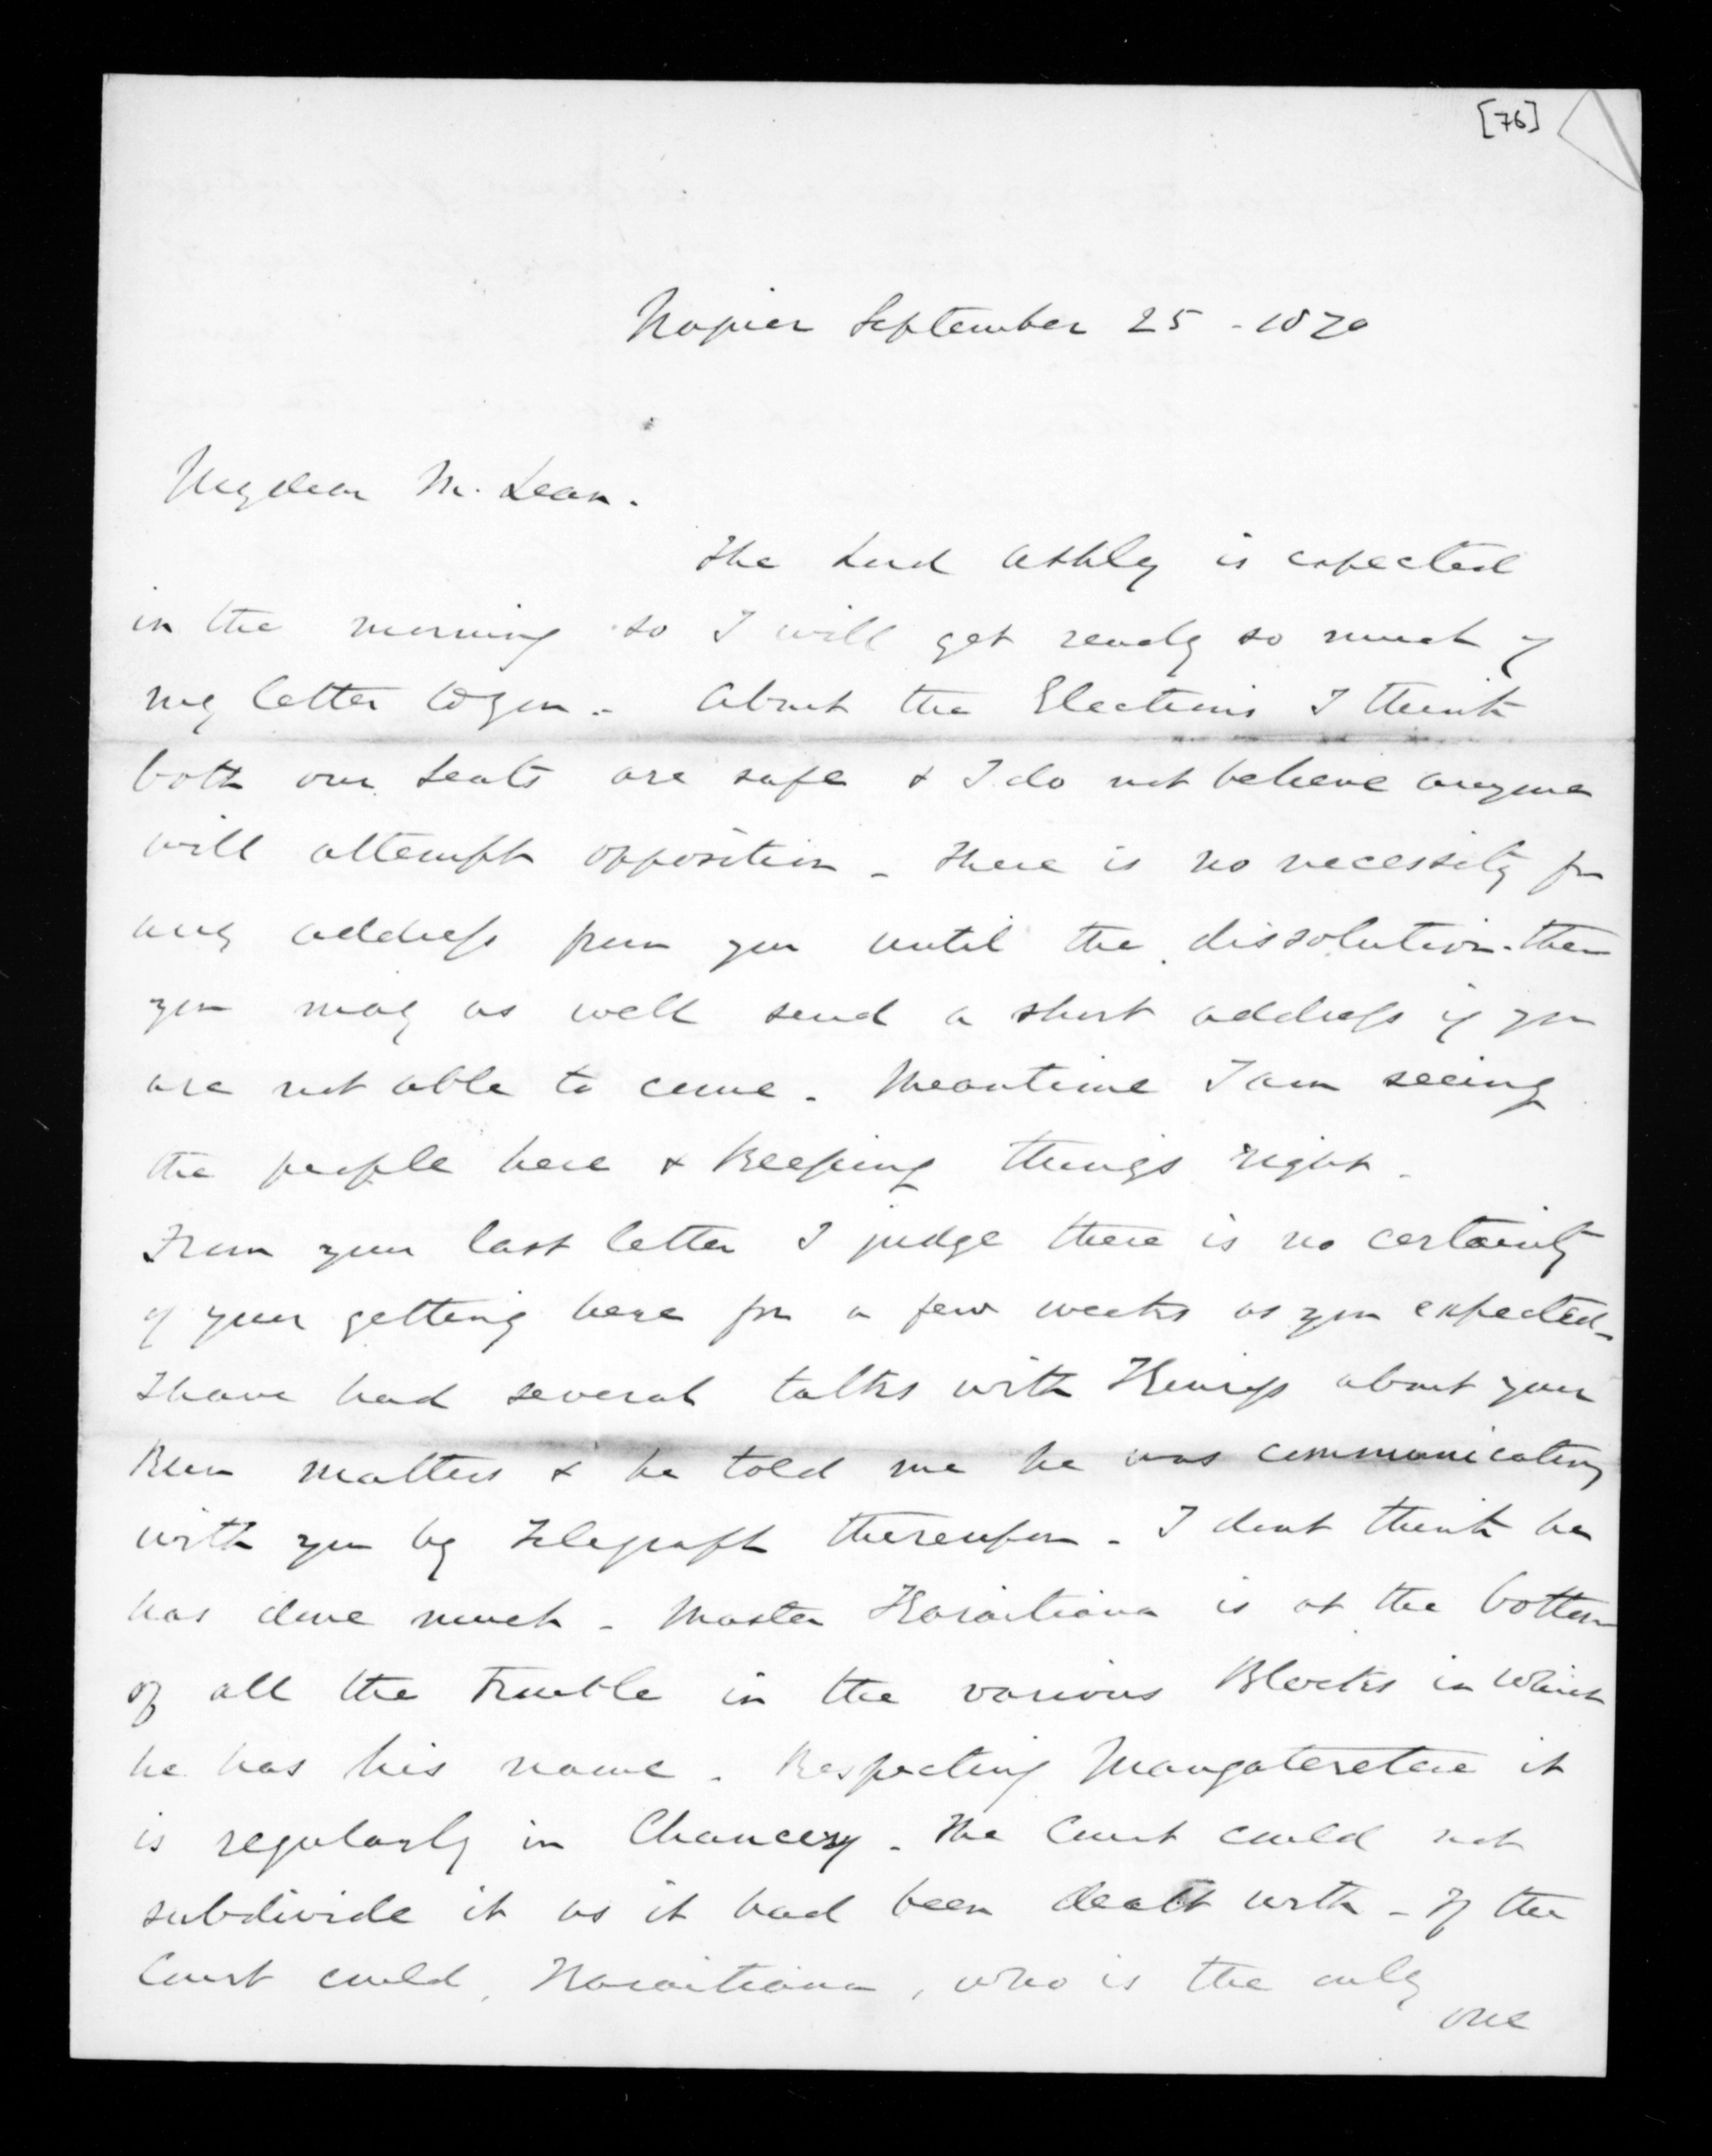 [76]
Napier September 25 - 1870
My dear McLean.
The Lord Ashley is expected
in the morning so I will get ready so much of
my letter to you - About the Elections I think
both our seats are safe & I do not believe anyone
will attempt opposition - There is no necessity for
any address from you until the dissolution - then
you may as well send a short address if you
are not able to come. Meantime I am seeing
the people here & keeping things right -
From your last letter I judge there is no certainty
of your getting here for a few weeks as you expected -
I have had several talks with about your
Run matters & he told me he was communicating
with you by Telegraph thereupon - I dont think he
has done much - Master Karaitiana is at the bottom
of all the trouble in the various Blocks in which
he has his name. Respecting Mangateretere it
is regularly in Chancery - The Court could not
subdivide it as it had been dealt with - If the
Court could, Karaitiana, who is the only
one